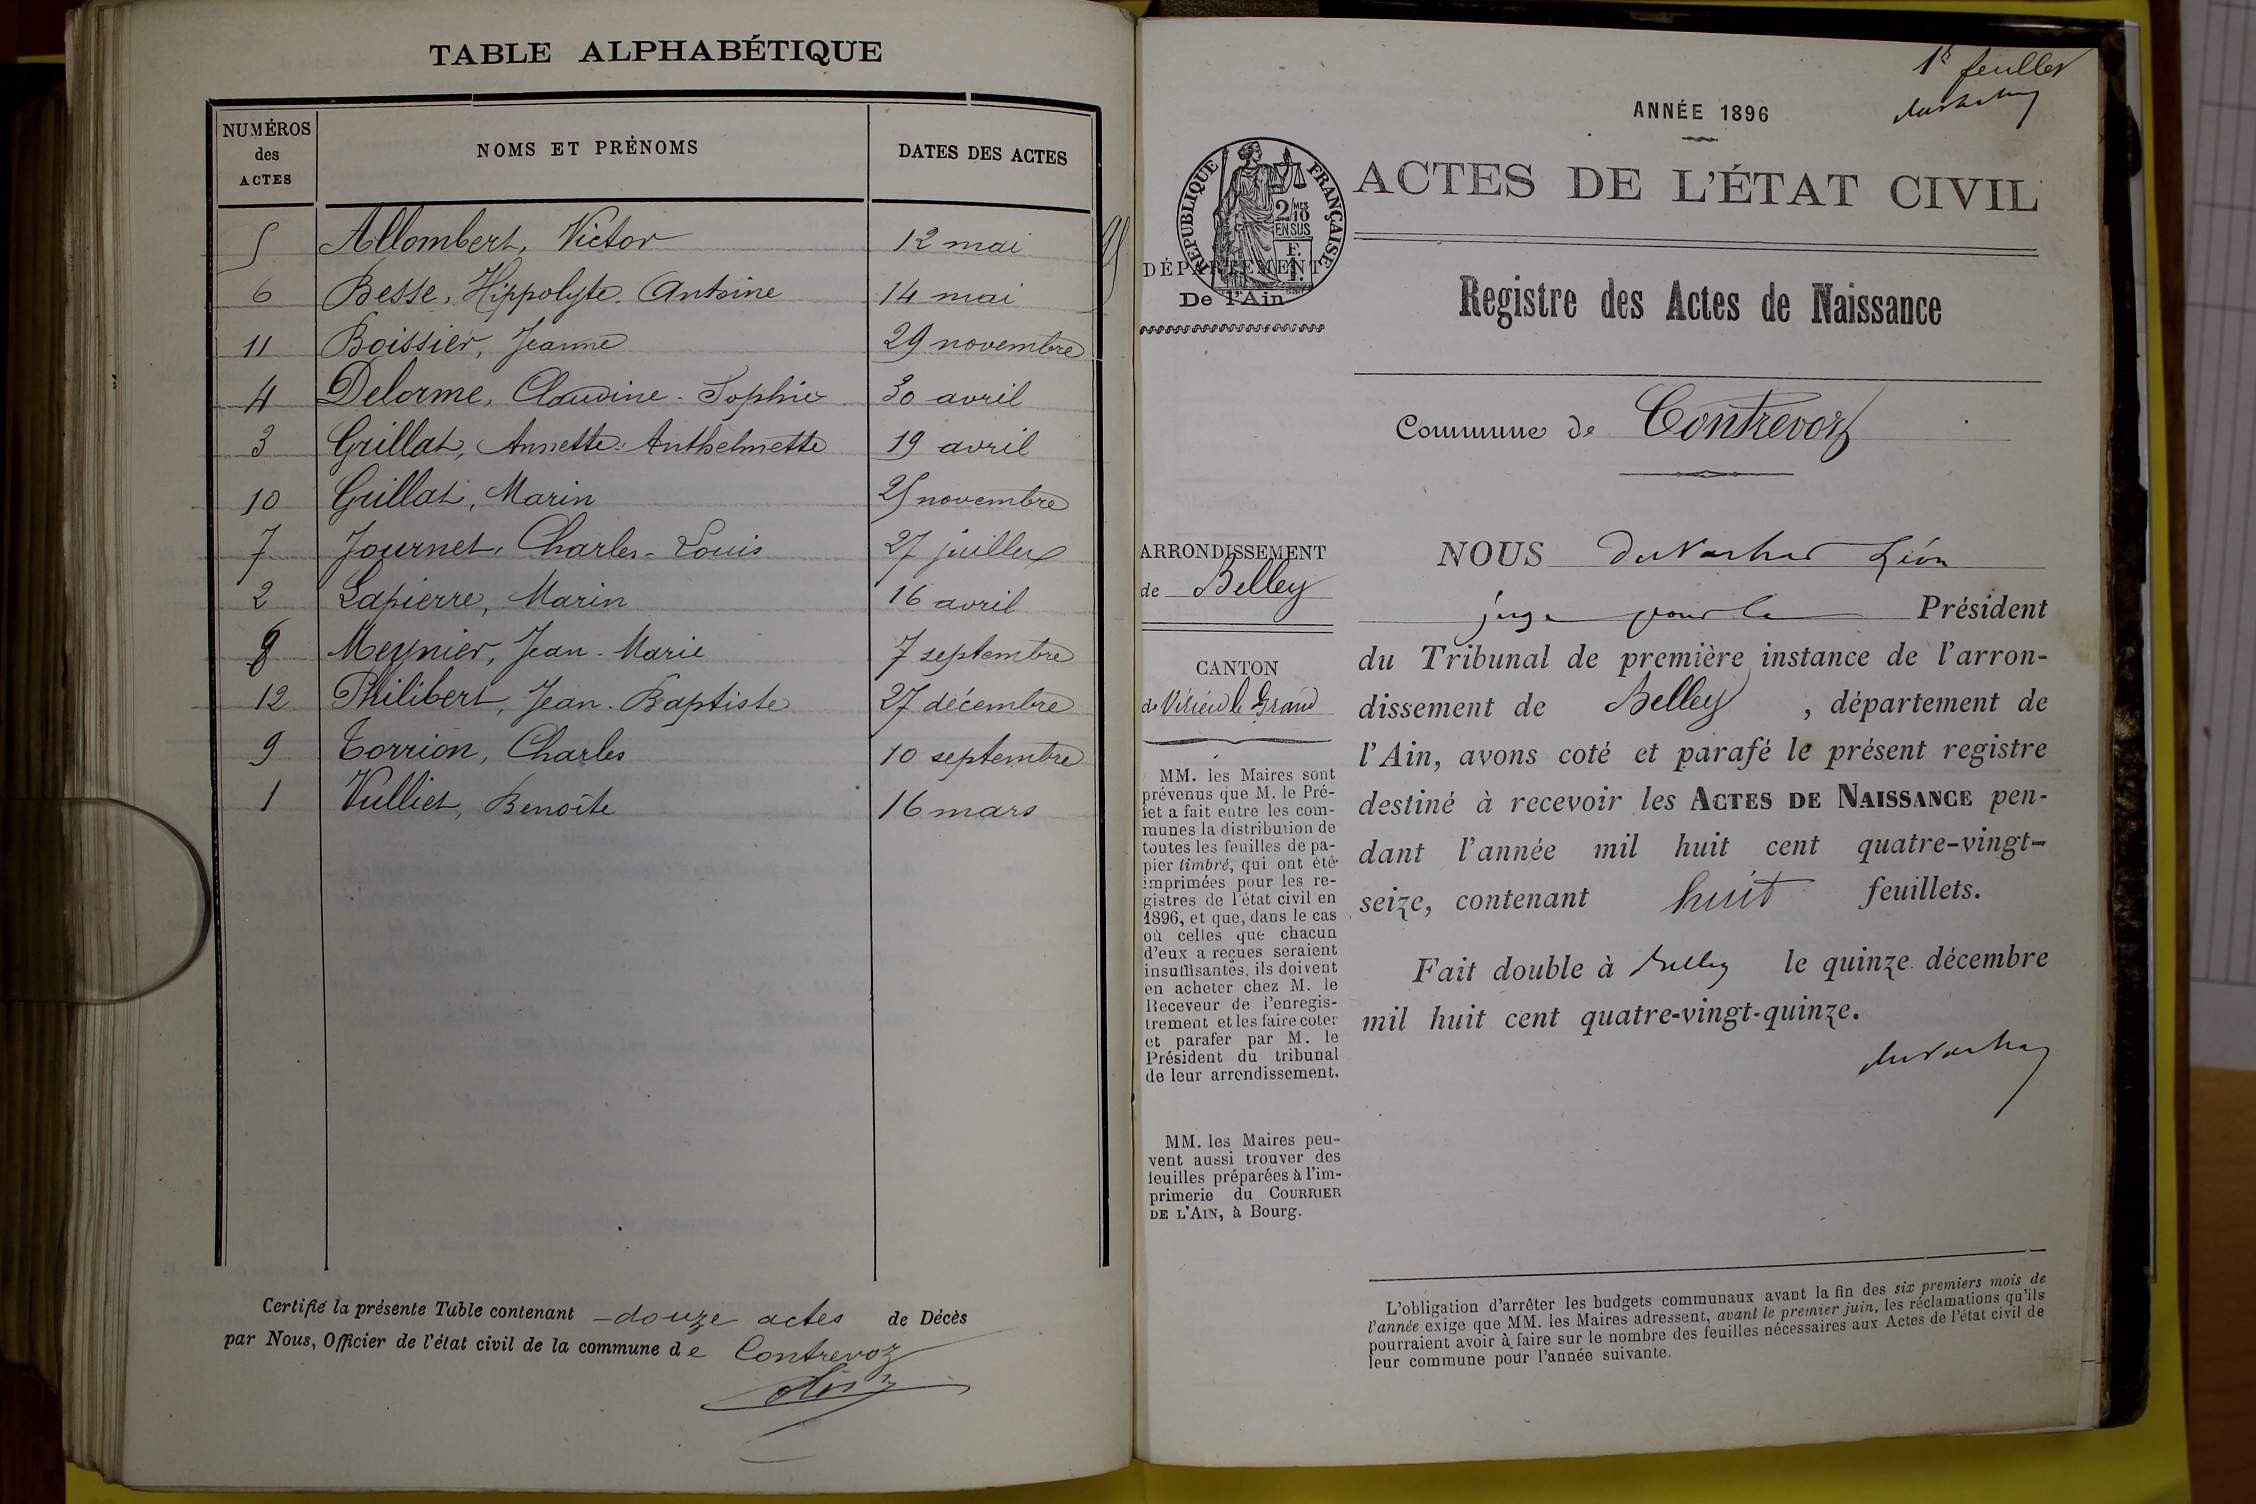 TABLE ALPHABÉTIQUE
NUMÉROS des ACTES | NOMS ET PRÉNOMS | DATES DES ACTES
5 Allombert, Victor 12 mai
6 Besse, Hippolyte Antoine 14 mai
11 Boissier, Jeanne 29 novembre
4 Delorme, Claudine-Sophie 30 avril
3 Grillat, Annette-Anthelmette 19 avril
10 Grillat, Marin 25 novembre
7 Journet, Charles-Louis 27 juillet
2 Lapierre, Marin 16 avril
8 Meynier, Jean-Marie 7 septembre
12 Philibert, Jean-Baptiste 27 décembre
9 Torrion, Charles 10 septembre
1 Vulliet, Benoîte 16 mars
Certifié la présente Table contenant douze actes de Décès
par Nous, Officier de l'état civil de la commune de Contrevoz
1er feuillet
ANNÉE 1896
RÉPUBLIQUE FRANÇAISE
2/10 MES
EN SUS
ACTES DE L'ÉTAT CIVIL
DÉPARTEMENT
De l'Ain
Registre des Actes de Naissance
Commune de Contrevoz
ARRONDISSEMENT
de Belley
CANTON
de Virieu le Grand
MM. les Maires sont
prévenus que M. le Pré-
fet a fait entre les com-
munes la distribution de
toutes les feuilles de pa-
pier timbré, qui ont été
imprimées pour les re-
gistres de l'état civil en
1896, et que, dans le cas
où celles que chacun
d'eux a reçues seraient
insuffisantes, ils doivent
en acheter chez M. le
Receveur de l'enregis-
trement et les faire coter
et parafer par M. le
Président du tribunal
de leur arrondissement.
MM. les Maires peu-
vent aussi trouver des
feuilles préparées à l'im-
primerie du COURRIER
DE L'AIN, à Bourg.
NOUS Léon
juge pour le Président
du Tribunal de première instance de l'arron-
dissement de Belley, département de
l'Ain, avons coté et parafé le présent registre
destiné à recevoir les ACTES DE NAISSANCE pen-
dant l'année mil huit cent quatre-vingt-
seize, contenant huit feuillets.
Fait double à Belley le quinze décembre
mil huit cent quatre-vingt-quinze.
L'obligation d'arrêter les budgets communaux avant la fin des six premiers mois de
l'année exige que MM. les Maires adressent, avant le premier juin, les réclamations qu'ils
pourraient avoir à faire sur le nombre des feuilles nécessaires aux Actes de l'état civil de
leur commune pour l'année suivante.